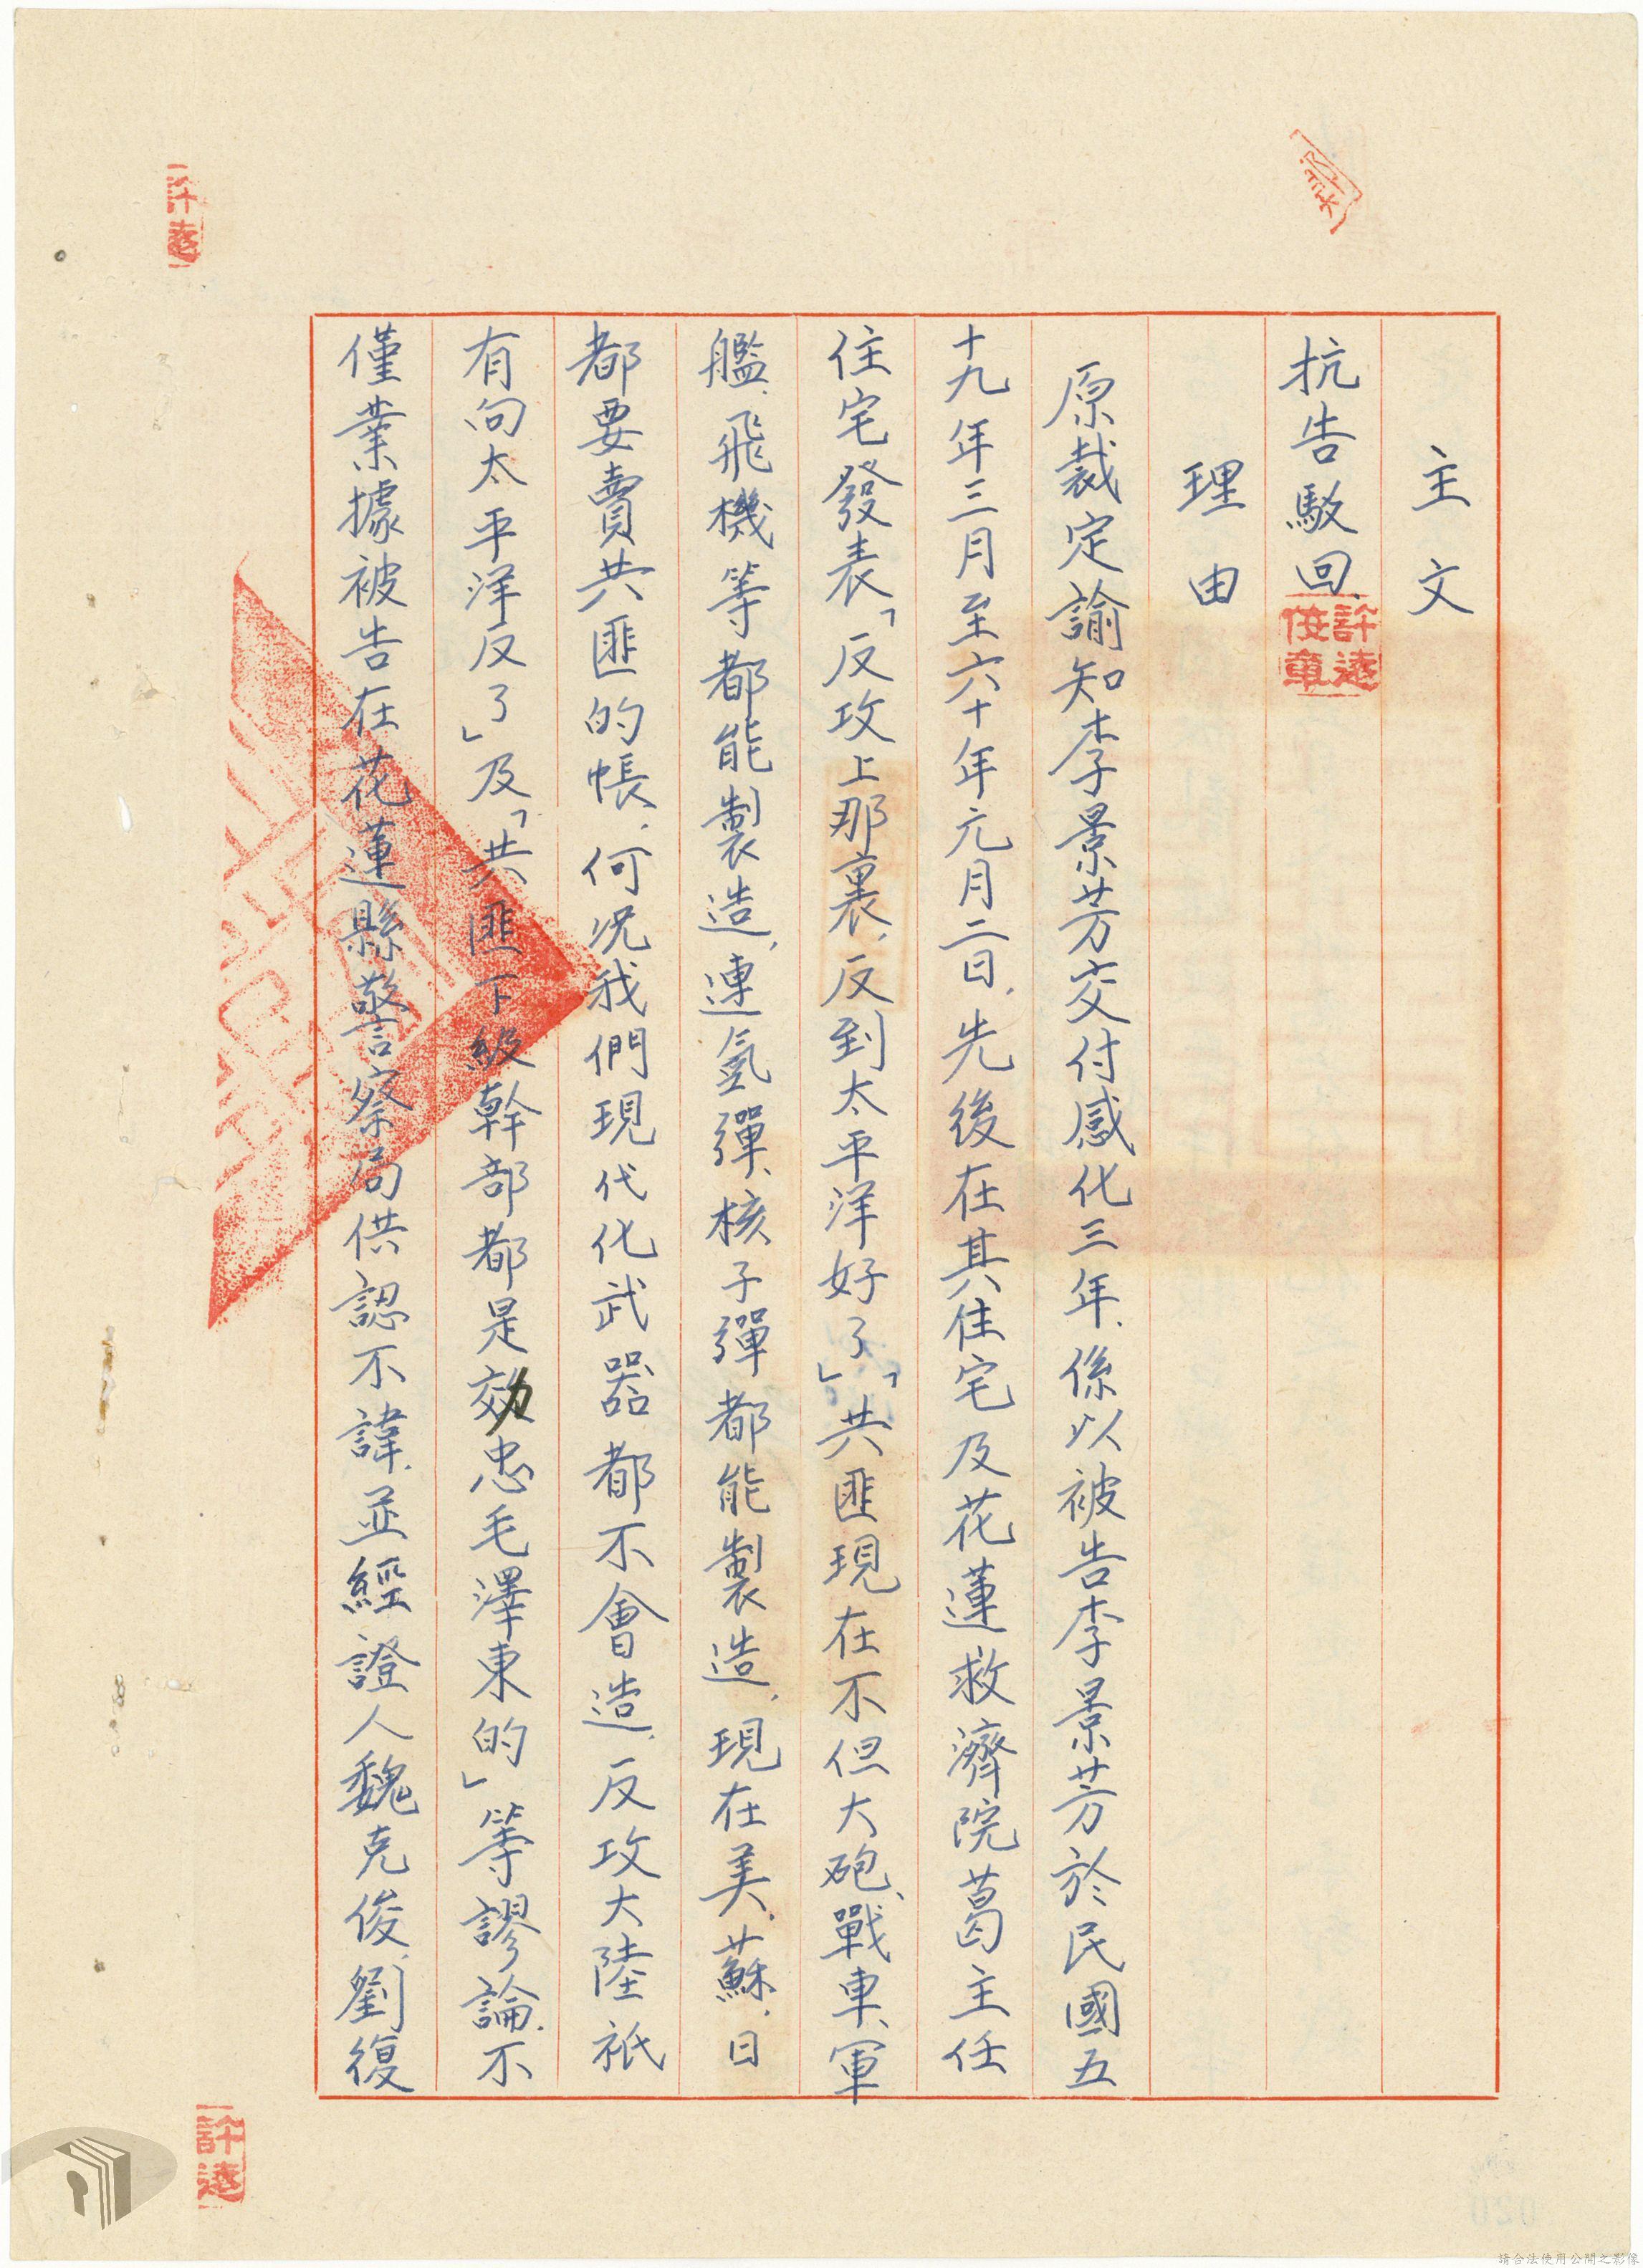 主文
抗告駁回、
理由
原裁定諭知李景芳交付感化三年、係以被告李景芳於民國五
十九年三月至六十年元月二日、先後在其住宅及花蓮救濟院葛主任
住宅發表「反攻上那裏、反到太平洋好了」「共匪現在不但大砲、戰車、軍
艦、飛機等都能製造、連氫彈、核子彈都能製造、現在美、蘇、日
都要賣共匪的帳、何況我們現代化武器都不會造、反攻大陸祇
有向太平洋反了」及「共匪下級幹部都是效忠毛澤東的」等謬論、不
僅業據被告在花蓮縣警察局供認不諱、並經證人魏克俊、劉復
許遠
許遠
請合法使用公開之影像